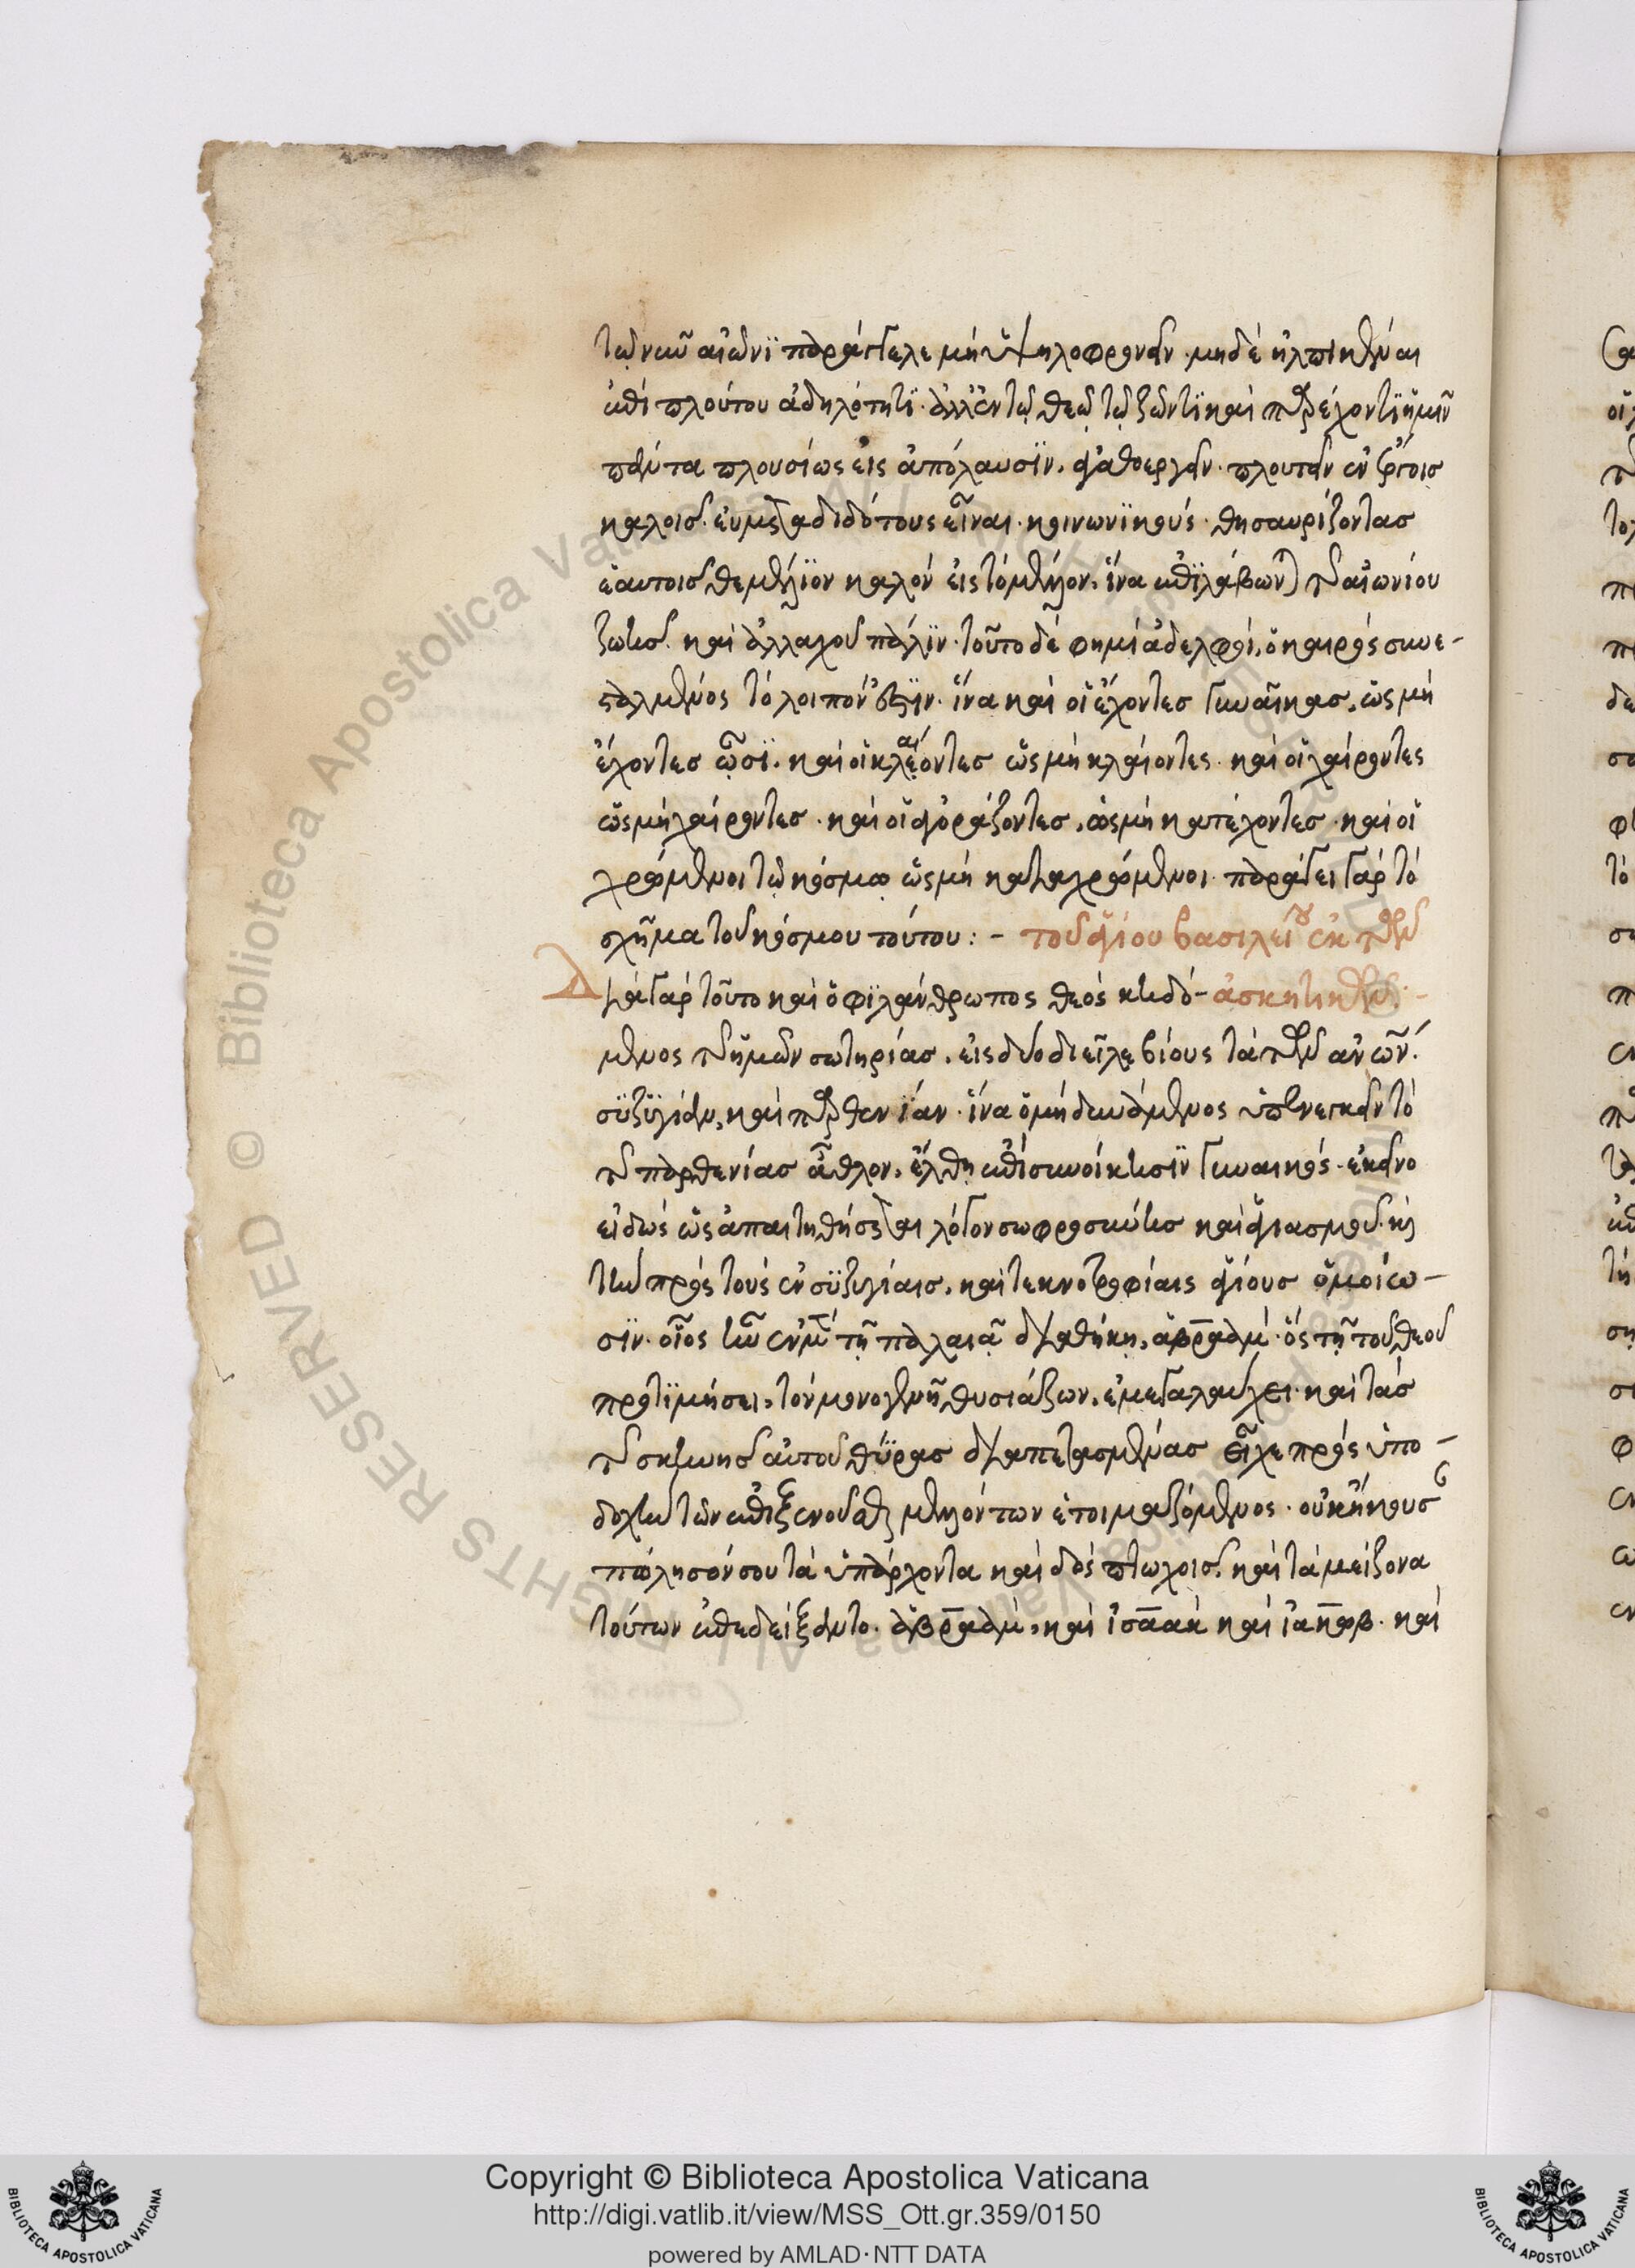 τῷ νῦν αἰῶνϊ παράγγελε μὴ ὑψηλοφρονεῖν· μηδὲ ἠλπικέναι
ἐπὶ πλούτου ἀδηλότητϊ· ἀλλ' ἐν τῷ θεῷ τῷ ζῶντϊ καὶ παρέχοντϊ ἡμῖν
πάντα πλουσίως εἰς ἀπόλαυσϊν. ἀγαθοεργεῖν· πλουτεῖν ἐν ἔργοις
καλοῖς. εὐμεταδότους εἶναι· κοινωνϊκούς· θησαυρίζοντας
ἑαυτοῖς θεμέλϊον καλὸν εἰς τὸ μέλλον. ἵνα ἐπϊλάβωνται τῆς αἰωνίου
ζωῆς. καὶ ἀλλαχοῦ πάλϊν· τοῦτο δέ φημι ἀδελφοί, ὁ καιρὸς συνε-
σταλμένος τὸ λοιπόν ἐστϊν· ἵνα καὶ οἱ ἔχοντες γυναῖκας, ὡς μὴ
ἔχοντες ὦσϊ. καὶ οἱ κλαίοντες ὡς μὴ κλαίοντες· καὶ οἱ χαίροντες
ὡς μὴ χαίροντες· καὶ οἱ ἀγοράζοντες, ὡς μὴ κατέχοντες· καὶ οἱ
χρώμενοι τῷ κόσμῳ ὡς μὴ καταχρώμενοι· παράγει γὰρ τὸ
σχῆμα τοῦ κόσμου τούτου: - τοῦ ἁγίου βασιλείου ἐκ τῶν
Διὰ γὰρ τοῦτο καὶ ὁ φϊλάνθρωπος θεὸς κηδό- ἀσκητικῶν: -
μενος τῆς ἡμῶν σωτηρίας, εἰς δύο διεῖλε βίους τὰ τῶν ἀνων.
σϋζϋγίαν, καὶ παρθενίαν· ἵνα ὁ μὴ δυνάμενος ὑπενεγκεῖν τὸ
τῆς παρθενίας ἆθλον, ἔλθῃ ἐπὶ συνοίκησϊν γυναικός· ἐκεῖνο
εἰδὼς ὡς ἀπαιτηθήσεται λόγον σωφροσύνης καὶ ἁγιασμοῦ. καὶ
τὴν πρὸς τοὺς ἐν σϋζυγίαις, καὶ τεκνοτροφίαις ἁγίους ὁμοίω-
σϊν. οἷος ἦν ἐν μὲν τῇ παλαιᾷ διαθήκῃ, ἀβραάμ· ὃς τῇ τοῦ θεοῦ
προτϊμήσει, τὸν μονογενῆ θυσιάζων, ἐμεγαλαύχει· καὶ τὰς
τῆς σκηνῆς αὐτοῦ θύρας διαπετασμένας εἶχε πρὸς ὑπο-
δοχὴν τῶν ἐπιξενοῦσθαι μελλόντων ἑτοιμαζόμενος· οὐκ ἤκουσε
πώλησόν σου τὰ ὑπάρχοντα καὶ δὸς πτωχοῖς. καὶ τὰ μείζονα
τούτων ἐπεδείξαντο. ἀβραάμ, καὶ ἰσαὰκ καὶ ἰακώβ. καὶ
Copyright © Biblioteca Apostolica Vaticana
http://digi.vatlib.it/view/MSS_Ott.gr.359/0150
powered by AMLAD·NTT DATA
BIBLIOTECA APOSTOLICA VATICANA
BIBLIOTECA APOSTOLICA VATICANA